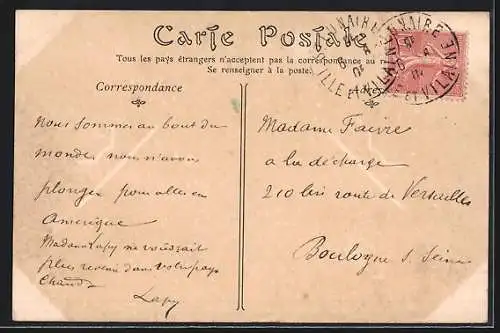 Carte Postale
Tous les pays étrangers n'acceptent pas la correspondance au
Se renseigner à la poste.
Correspondance
Nous sommes au bout du
monde nous n'avons
plonger pour aller en
Amerique
Madame Lapy ne
plus revenir dans votre pays
Chaud
Lapy
Madame Faivre
a la décharge
210 bis route de Versailles
Boulogne s. Seine
DINAIRE
ILLE ET VILAINE
DINAIRE
ILLE ET VILAINE